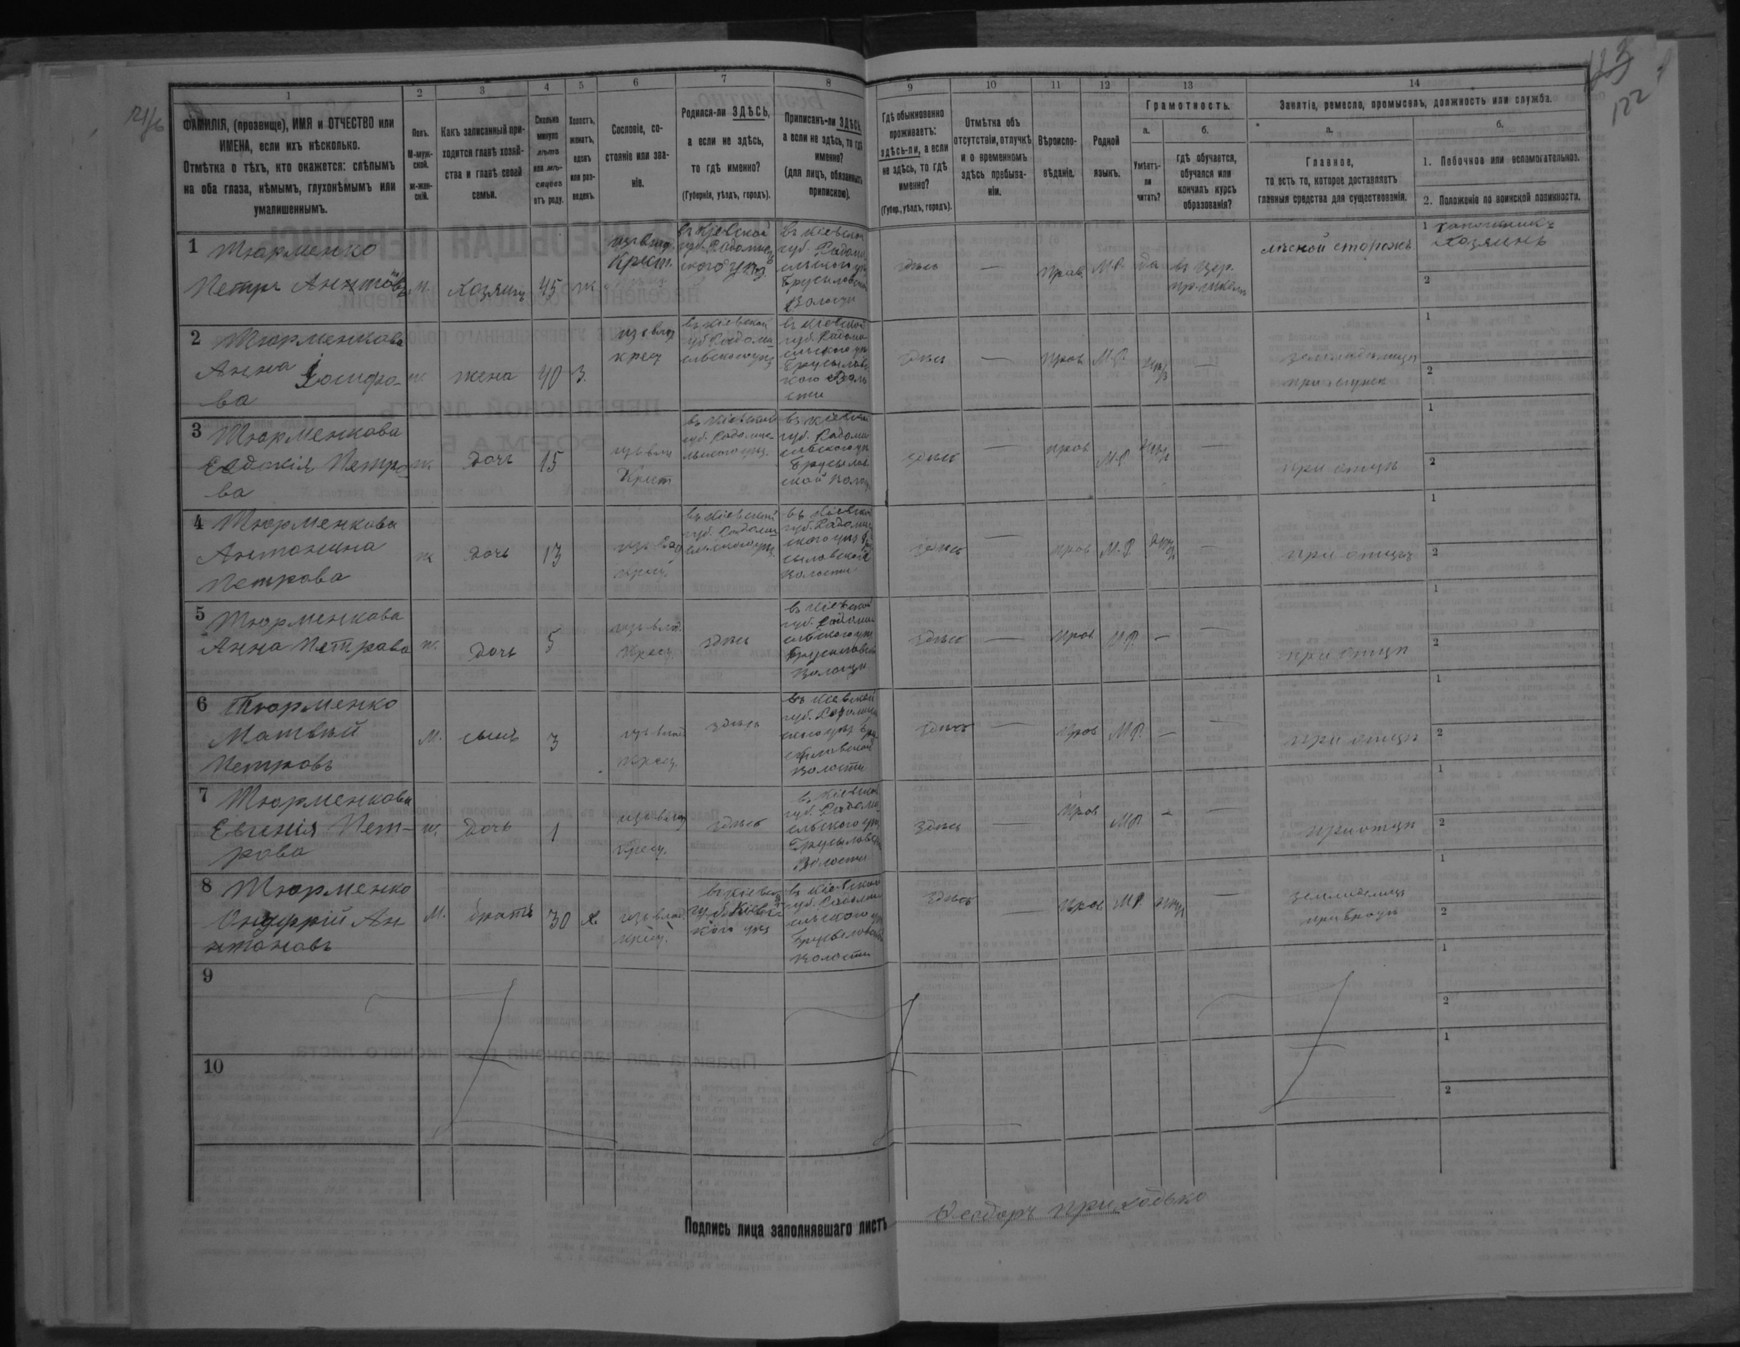 123
122
1
2
3
4
5
6
7
8
9
10
11
12
13
14
ФАМИЛІЯ, (прозвище), ИМЯ и ОТЧЕСТВО или
ИМЕНА, если ихъ нѣсколько.
Отмѣтка о тѣхъ, кто окажется: слѣпымъ
на оба глаза, нѣмымъ, глухонѣмымъ или
умалишеннымъ.
Полъ.
М-муж-
ской.
ж-жен-
скій.
Какъ записанный при-
ходится главѣ хозяй-
ства и главѣ своей
семьи.
Сколько
минуло
лѣтъ
или мѣ-
сяцевъ
отъ роду.
Холостъ,
женатъ,
вдовъ
или раз-
веденъ.
Сословіе, со-
стояніе или зва-
ніе.
Родился-ли ЗДѢСЬ,
а если не здѣсь,
то гдѣ именно?
(Губернія, уѣздъ, городъ).
Приписанъ-ли ЗДѢСЬ,
а если не здѣсь, то гдѣ
именно?
(для лицъ, обязанныхъ
припискою).
Гдѣ обыкновенно
проживаетъ:
здѣсь-ли, а если
не здѣсь, то гдѣ
именно?
(Губер., уѣздъ, городъ).
Отмѣтка объ
отсутствіи, отлучкѣ
и о временномъ
здѣсь пребыва-
ніи.
Вѣроиспо-
вѣданіе.
Родной
языкъ.
Грамотность.
а.
б.
Умѣетъ-
ли
читать?
гдѣ обучается,
обучался или
кончилъ курсъ
образованія?
Занятіе, ремесло, промыселъ, должность или служба.
а.
б.
Главное,
то есть то, которое доставляетъ
главныя средства для существованія.
1. Побочное или вспомогательное.
2. Положеніе по воинской повинности.
1 Тюрменко
Петръ Антоновъ
м.
хозяинъ
45
ж
изъ влад.
Крест.
въ Кіевской
губ. Радомысл
ского уѣз
въ Кіевской
губ. Радомы
сльскаго у
Брусиловской
Волости
здѣсь
—
прав
М.Р.
да
въ цер.
пр. школѣ
лѣсной сторожъ
1
хозяинъ
2
2 Тюрменкова
Анна Іосифо-
ва
ж
жена
40
З.
изъ влад
крест
въ Кіевской
губ. Радомы
сльского уѣз
въ Кіевской
губ. Радомы
сльского уѣ
Брусилов
кого Воло
сти
здѣсь
—
прав
М.Р.
—
при мужѣ
1
2
3 Тюрменкова
Евдокія Петро-
ва
ж
дочь
15
изъ влад
Крест
въ Кіевской
губ. Радомы
сльского уѣз.
въ Кіевской
губ. Радомы
сльского у
Брусилов
ской Волос
здѣсь
—
прав
М.Р.
—
при отцѣ
1
2
4 Тюрменкова
Антонина
Петрова
ж
дочь
13
изъ вла
Крест.
въ Кіевской
губ. Радомы
сльского уѣз
въ Кіевской
губ. Радомы
ского уѣз Бру
сыловской
Волости
здѣсь
—
прав
М.Р.
—
при отцѣ
1
2
5 Тюрменкова
Анна Петрова
ж.
дочь
5
изъ влад.
Крест.
здѣсь
въ Кіевской
губ. Радомы
сльского уѣз
Брусиловской
Волости
здѣсь
—
прав
МР.
—
—
при отцѣ
1
2
6 Тюрменко
Матвѣй
Петровъ
м.
сынъ
3
изъ влад
Крест.
здѣсь
въ Кіевской
губ. Радомы
ского уѣз Бру
силовской
Волости
здѣсь
—
прав
МР.
—
—
при отцѣ
1
2
7 Тюрменкова
Евгенія Пет-
рова
ж.
дочь
1
изъ влад
Крест.
здѣсь
въ Кіевской
губ. Радомы
сльского уѣз
Брусыловск
Волости
здѣсь
—
прав
МР.
—
—
при отцѣ
1
2
8 Тюрменко
Онуфрій Ан
нтоновъ
М.
братъ
30
х.
изъ влад
Крест.
въ Кіевск
губ. Кіевс
кого уѣз
въ Кіевской
губ. Радомы
сльского у
Брусыловской
Волости
здѣсь
—
прав
МР
—
земледѣлецъ
при братѣ
1
2
9
1
2
10
1
2
Подпись лица заполнявшаго листъ
Ѳеодоръ Приходько